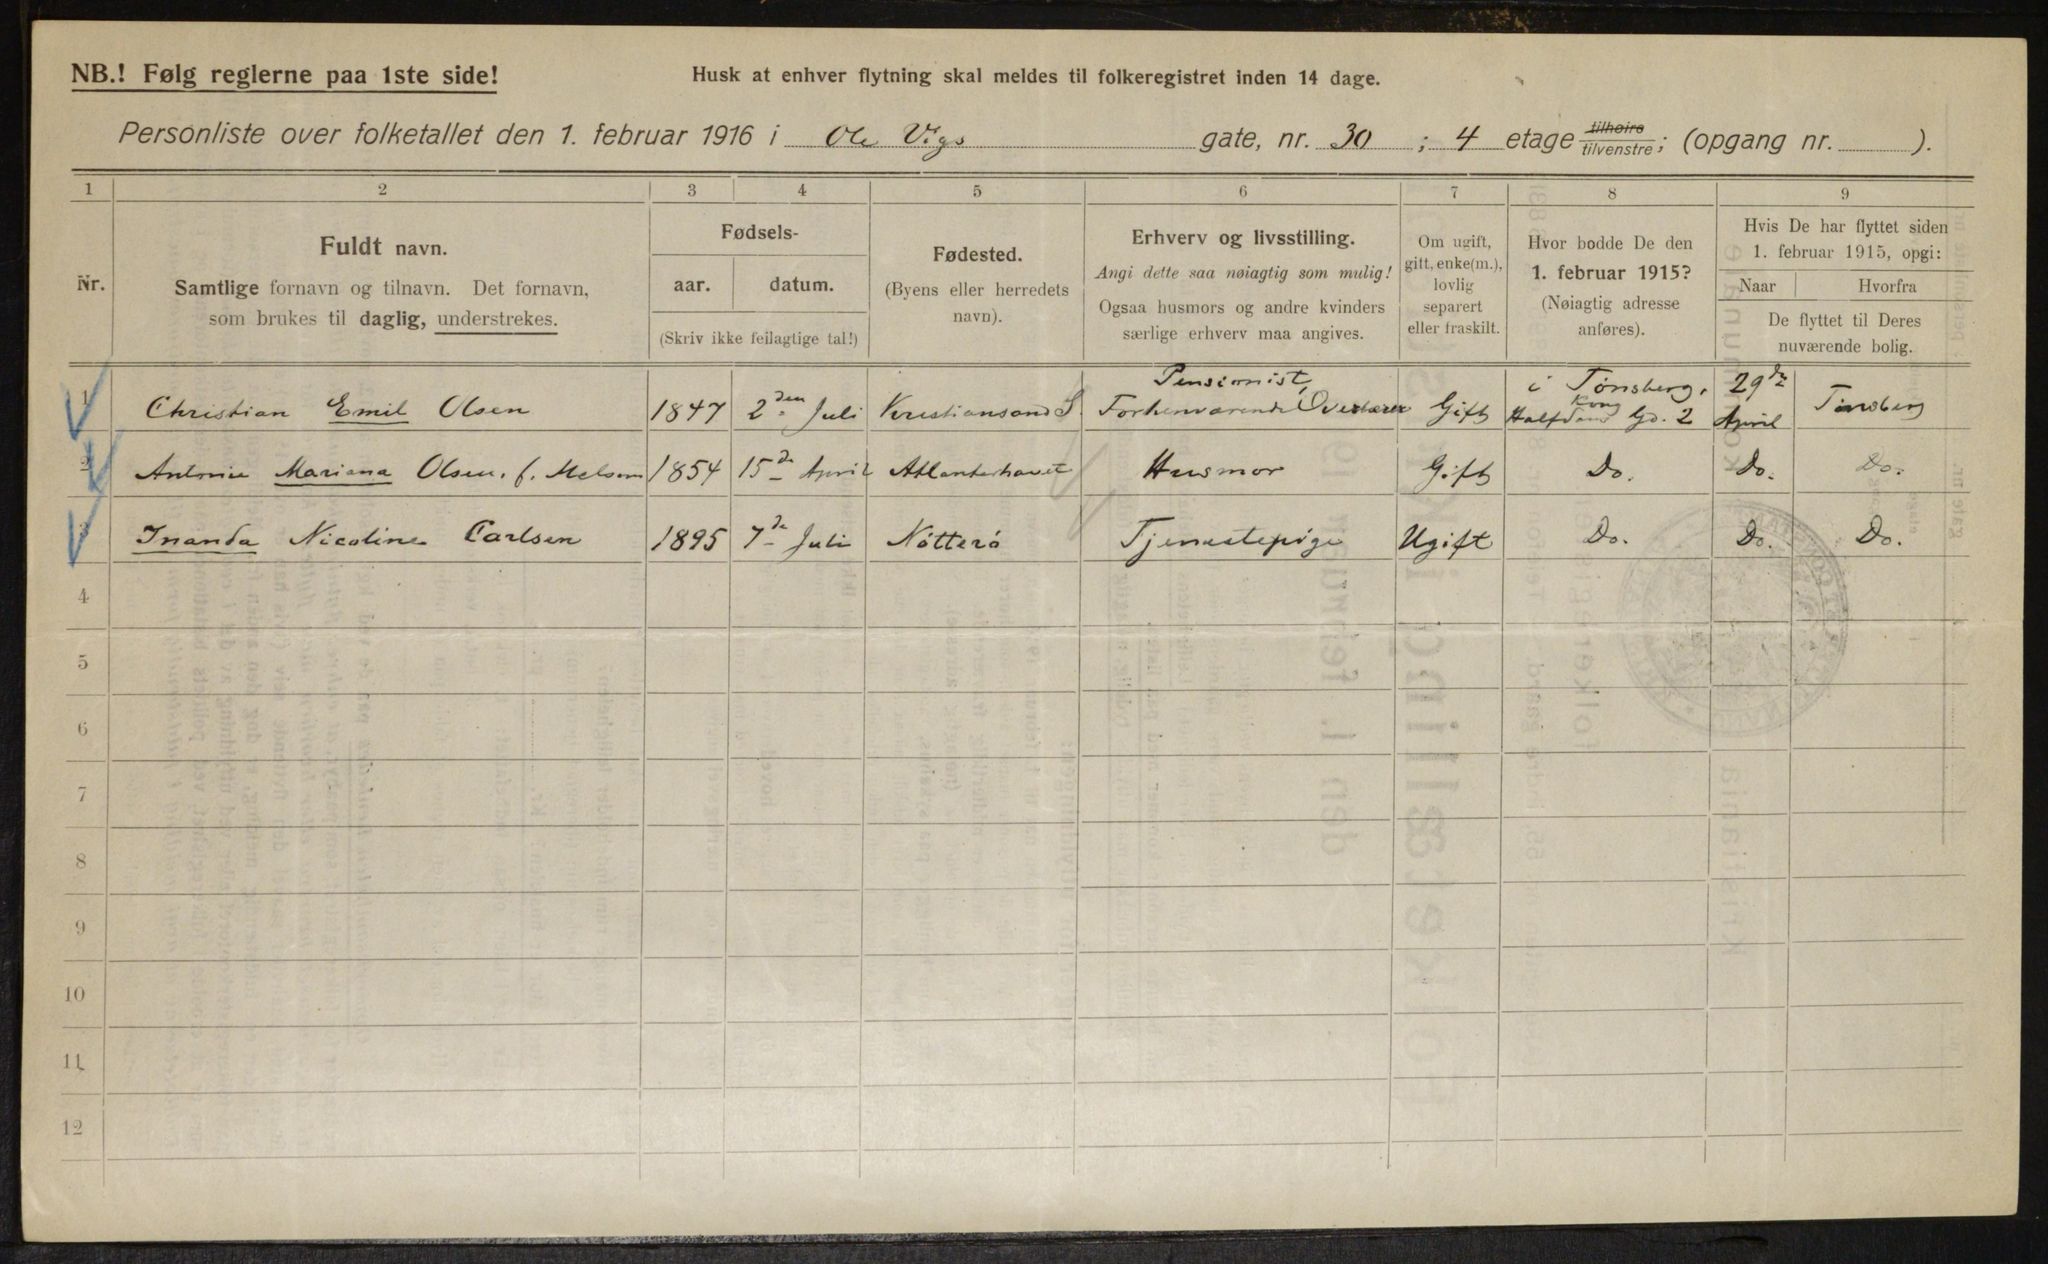 NB.! Følg reglerne paa 1ste side!
Husk at enhver flytning skal meldes til folkeregistret inden 14 dage.
Personliste over folketallet den 1. februar 1916 i Ole Vigs gate, nr. 30; 4 etage tilhøire tilvenstre; (opgang nr. ).
1 2 3 4 5 6 7 8 9
Nr.
Fuldt navn.
Samtlige fornavn og tilnavn. Det fornavn,
som brukes til daglig, understrekes.
Fødsels-
aar. datum.
(Skriv ikke feilagtige tal!)
Fødested.
(Byens eller herredets
navn).
Erhverv og livsstilling.
Angi dette saa nøiagtig som mulig!
Ogsaa husmors og andre kvinders
særlige erhverv maa angives.
Om ugift,
gift, enke(m.),
lovlig
separert
eller fraskilt.
Hvor bodde De den
1. februar 1915?
(Nøiagtig adresse
anføres).
Hvis De har flyttet siden
1. februar 1915, opgi:
Naar Hvorfra
De flyttet til Deres
nuværende bolig.
1 Christian Emil Olsen 1847 2den Juli Kristiansand S Pensionist, Forhenværende Overlærer Gift i Tønsberg, Kong Halfdans Gd. 2 29de April Tønsberg
2 Antonie Mariana Olsen, f. Melsom 1854 15de April Atlanterhavet Husmor Gift Do. Do. Do.
3 Inanda Nicoline Carlsen 1895 7de Juli Nötterö Tjenestepige Ugift Do. Do. Do.
4
5
6
7
8
9
10
11
12